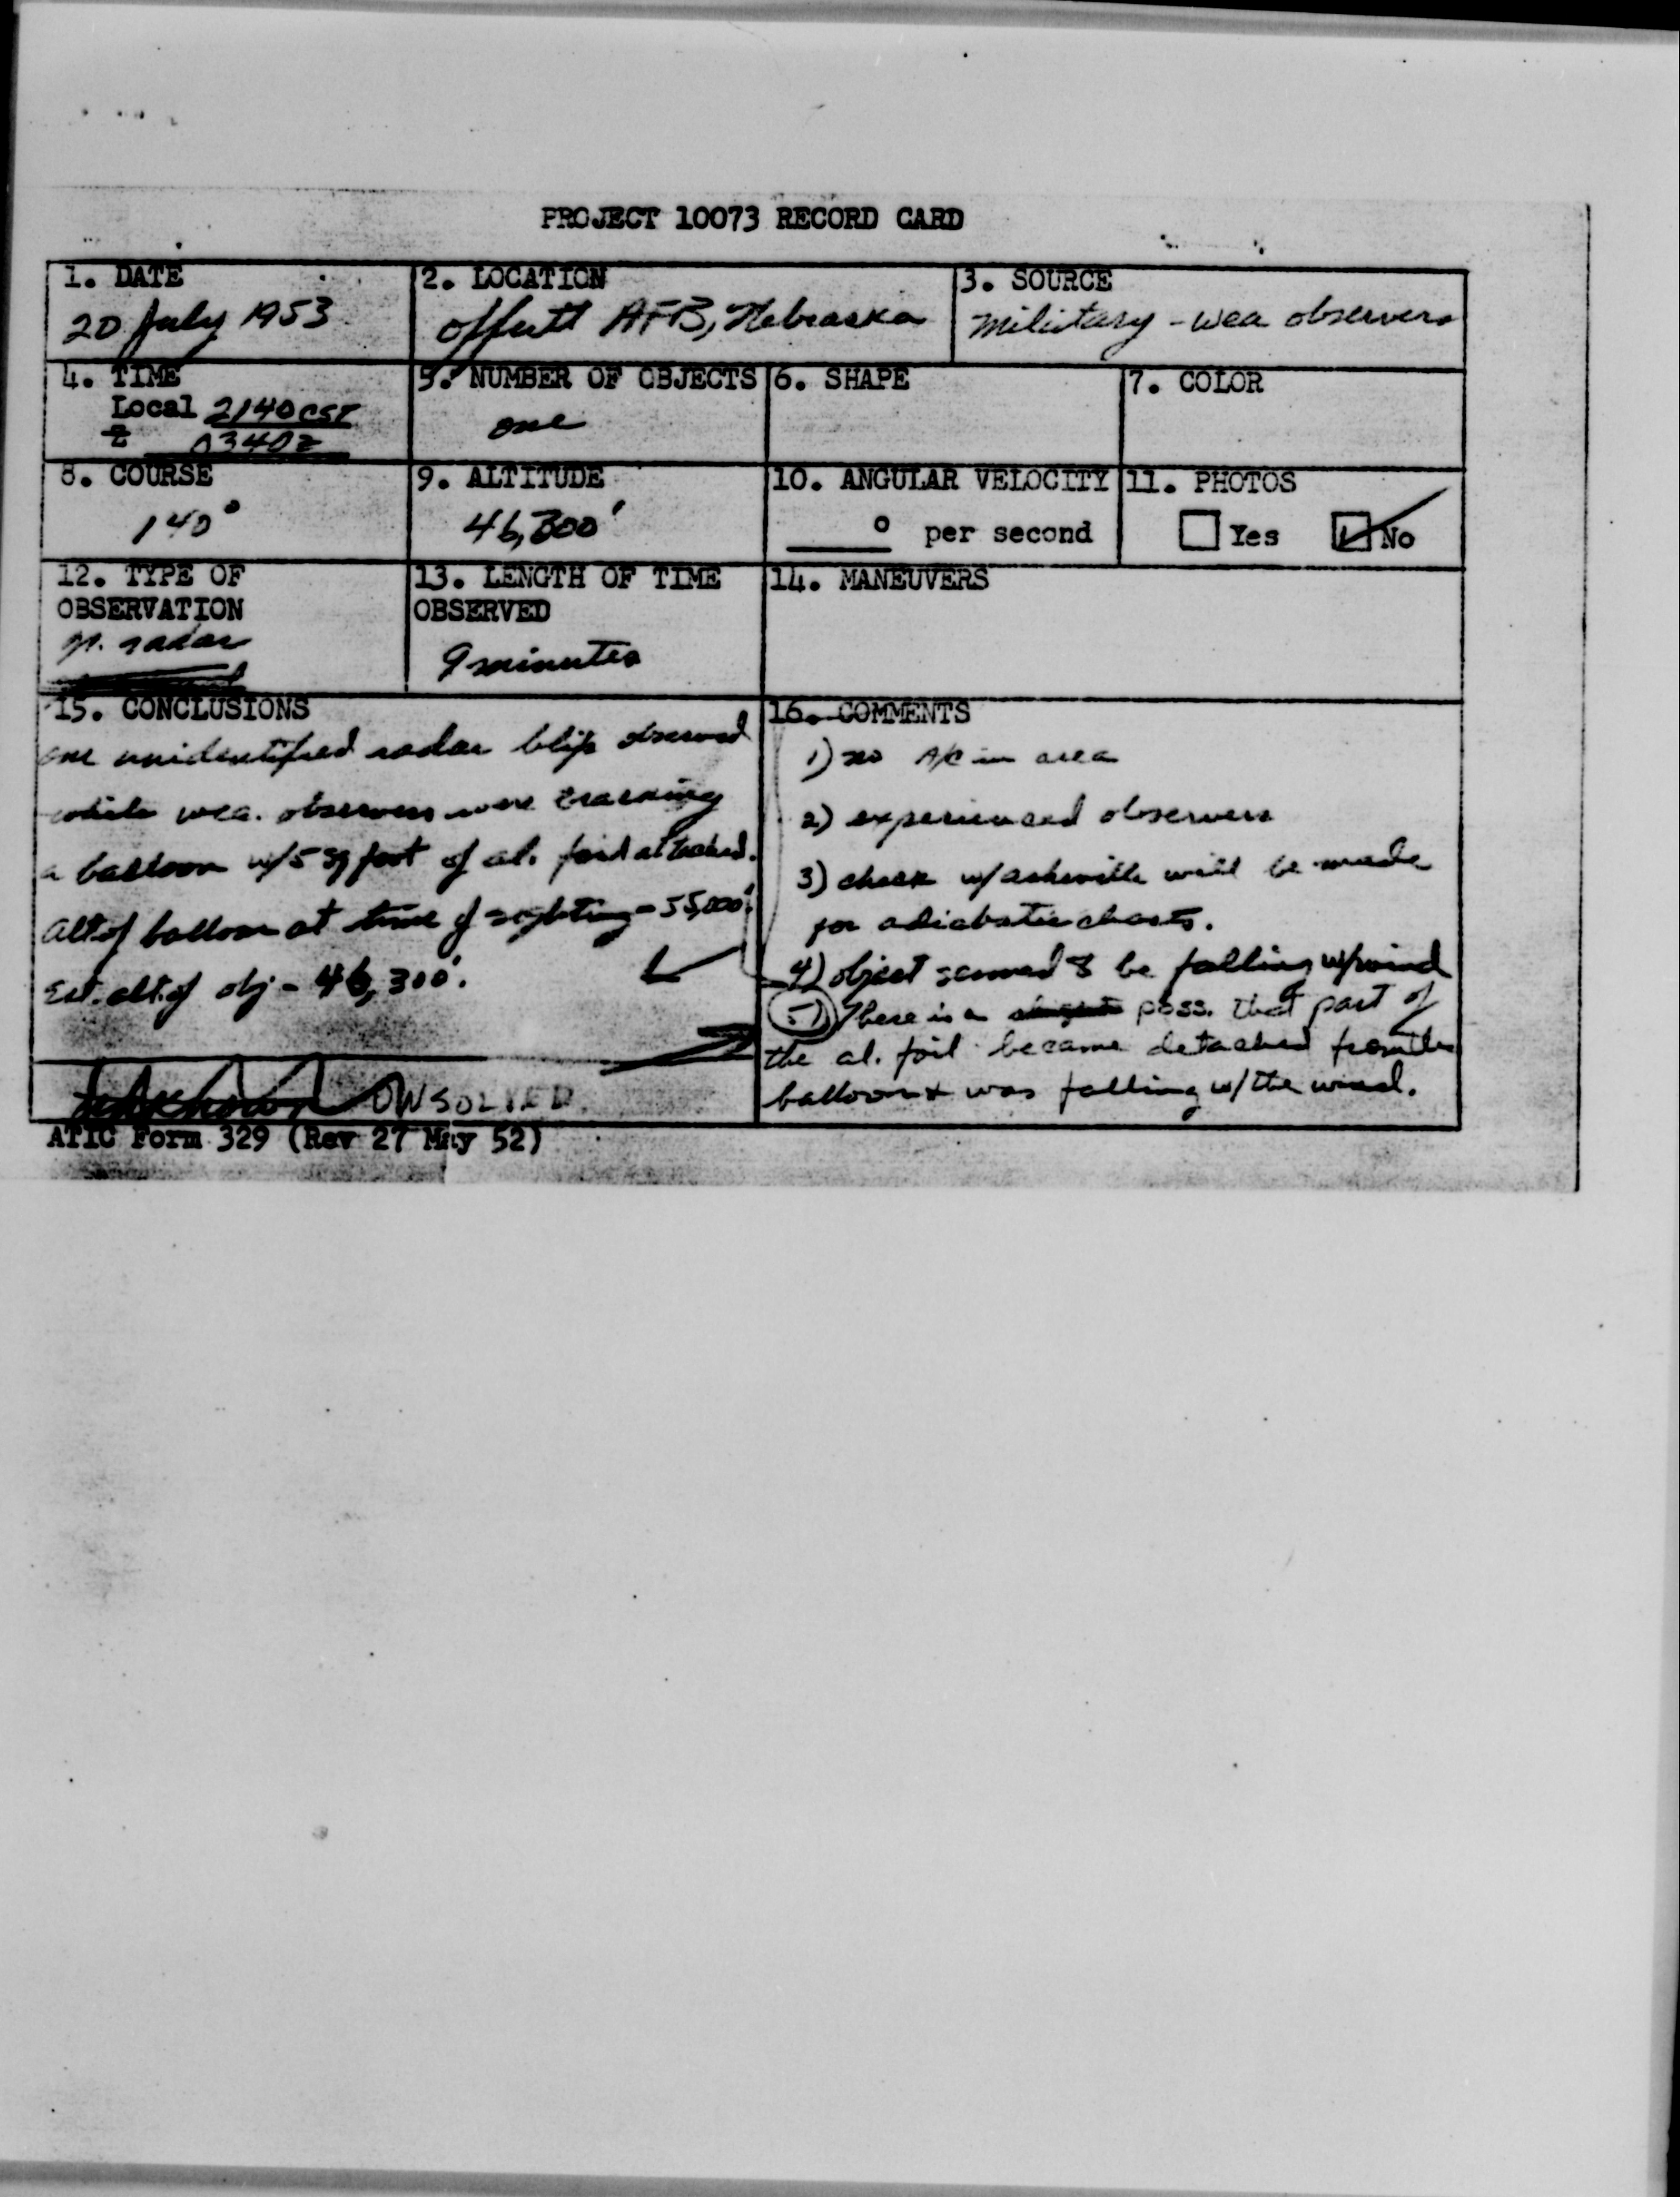 PROJECT 10073 RECORD CARD
1. DATE
20 July 1953
2. LOCATION
Offutt AFB, Nebraska
3. SOURCE
Military - wea observers
4. TIME
Local 2140 CST
Z 0340Z
5. NUMBER OF OBJECTS
one
6. SHAPE
7. COLOR
8. COURSE
140°
9. ALTITUDE
46,300'
10. ANGULAR VELOCITY
° per second
11. PHOTOS
Yes No
12. TYPE OF
OBSERVATION
radar
13. LENGTH OF TIME
OBSERVED
9 minutes
14. MANEUVERS
15. CONCLUSIONS
one unidentified radar blip observed
while wea. observers were tracking
a balloon w/5 sq foot of al. foil attached.
alt of balloon at time of sighting - 55,000'.
Est. alt. of obj - 46,300'.
Unknown UNSOLVED
16. COMMENTS
1) no A/C in area
2) experienced observers
3) check w/asheville will be made
for adiabatic charts.
4) object seemed to be falling w/wind
5) There is a poss. that part of
the al. foil became detached from the
balloon & was falling w/the wind.
ATIC Form 329 (Rev 27 May 52)